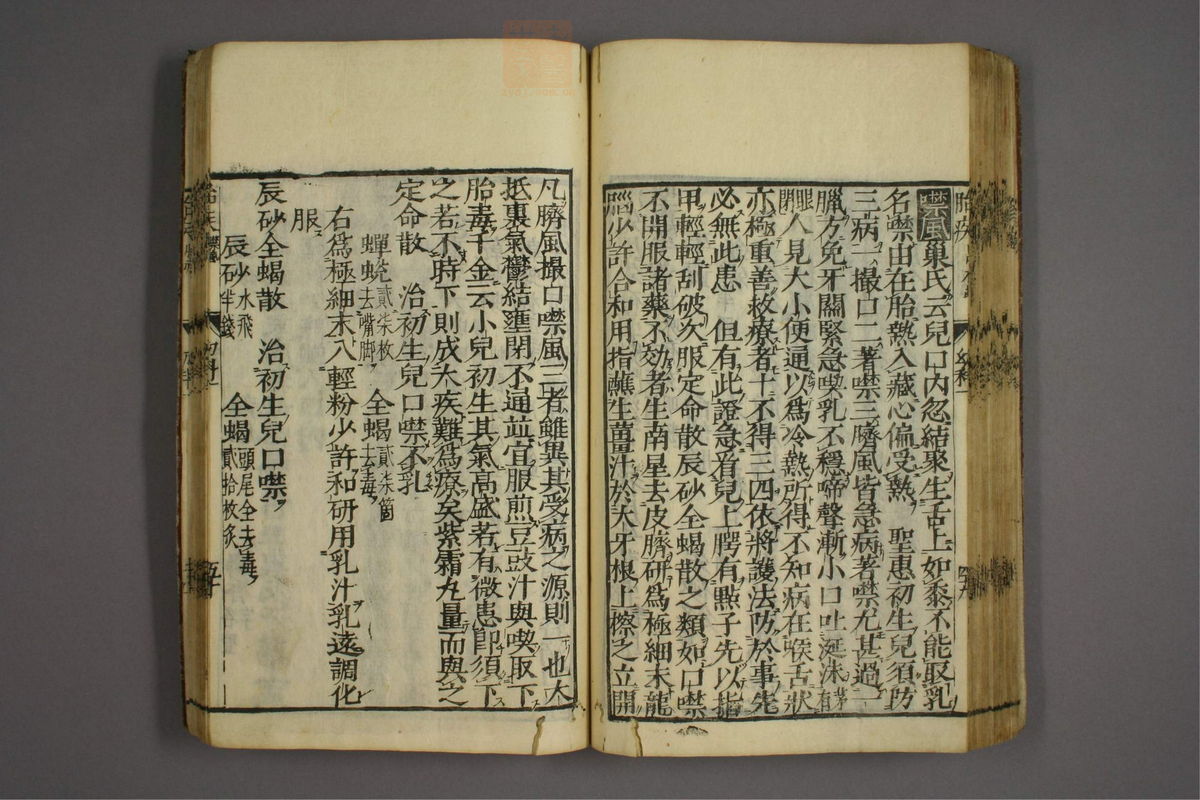 噤風巢氏云兒口内忽結聚生舌上如黍不能取乳
名噤由在胎熱入藏心偏受熱 聖惠初生兒須防
三病一撮口二著噤三臍風皆急病著噤尤甚過一
臘方免牙關緊急喫乳不穩啼聲漸小口吐涎沫
人見大小便通以爲冷熱所得不知病在喉舌狀
亦極重善救療者十不得三四依將護法防於事先
必無此患 但有此證急看兒上腭有點子先以指
甲輕輕刮破次服定命散辰砂全蝎散之類如口噤
不開服諸藥不効者生南星去皮臍研爲極細末龍
腦少許合和用指蘸生薑汁於大牙根上擦之立開
凡臍風撮口噤風三者雖異其受病之源則一也大
抵裏氣鬱結壅閉不通並宜服煎豆豉汁與喫取下
胎毒千金云小兒初生其氣高盛若有微患即須下
之若不時下則成大疾難爲療矣紫霜丸量而與之
定命散 治初生兒口噤不乳
蟬蛻貳柒枚去嘴脚 全蝎貳柒箇去毒
右爲極細末入輕粉少許和研用乳汁乳遠調化
服
辰砂全蝎散 治初生兒口噤
辰砂水飛半錢 全蝎頭尾全去毒貳拾枚炙